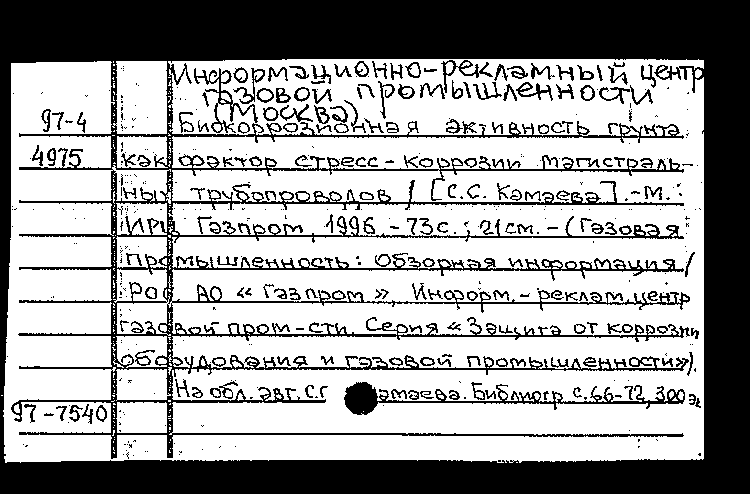 Информационно-рекламный центр
газовой промышленности
(Москва)
97-4 Биокоррозионная активность грунта
4975 как фактор стресс-коррозии магистраль-
ных трубопроводов / [С.С. Камаева]. -М.:
ИРЦ Газпром, 1996. - 73с.; 21см. - (Газовая
промышленность: Обзорная информация /
РОС АО « Газпром », Информ.-реклам. центр
газовой пром-сти. Серия « Защита от коррозии
оборудования и газовой промышленности»).
На обл. авт. С.С амаева. Библиогр с.66-72, 300 эк
97-7540